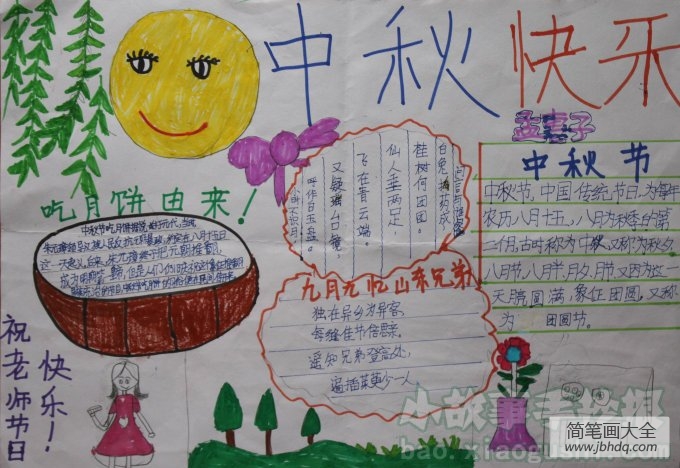 中秋快乐
孟嘉子
吃月饼由来！
中秋节
中秋节，中国传统节日，为每年
农历八月十五，八月为秋季的第
二个月，古时称为中秋，又称为秋夕
八月节，八月半，月夕，月节，又因为这一
天月圆满，象征团圆，又称
为 团圆节。
小时不识月
呼作白玉盘。
又疑瑶台镜，
飞在青云端。
仙人垂两足
桂树何团团。
白兔捣药成
九月九忆山东兄弟
独在异乡为异客，
每缝佳节倍思亲，
遥知兄弟登高处，
遥插茱萸少一人，
祝老师节日
快乐！
小故事手抄报
bao.xiaogushi.com
简笔画大全
www.jbhdq.com